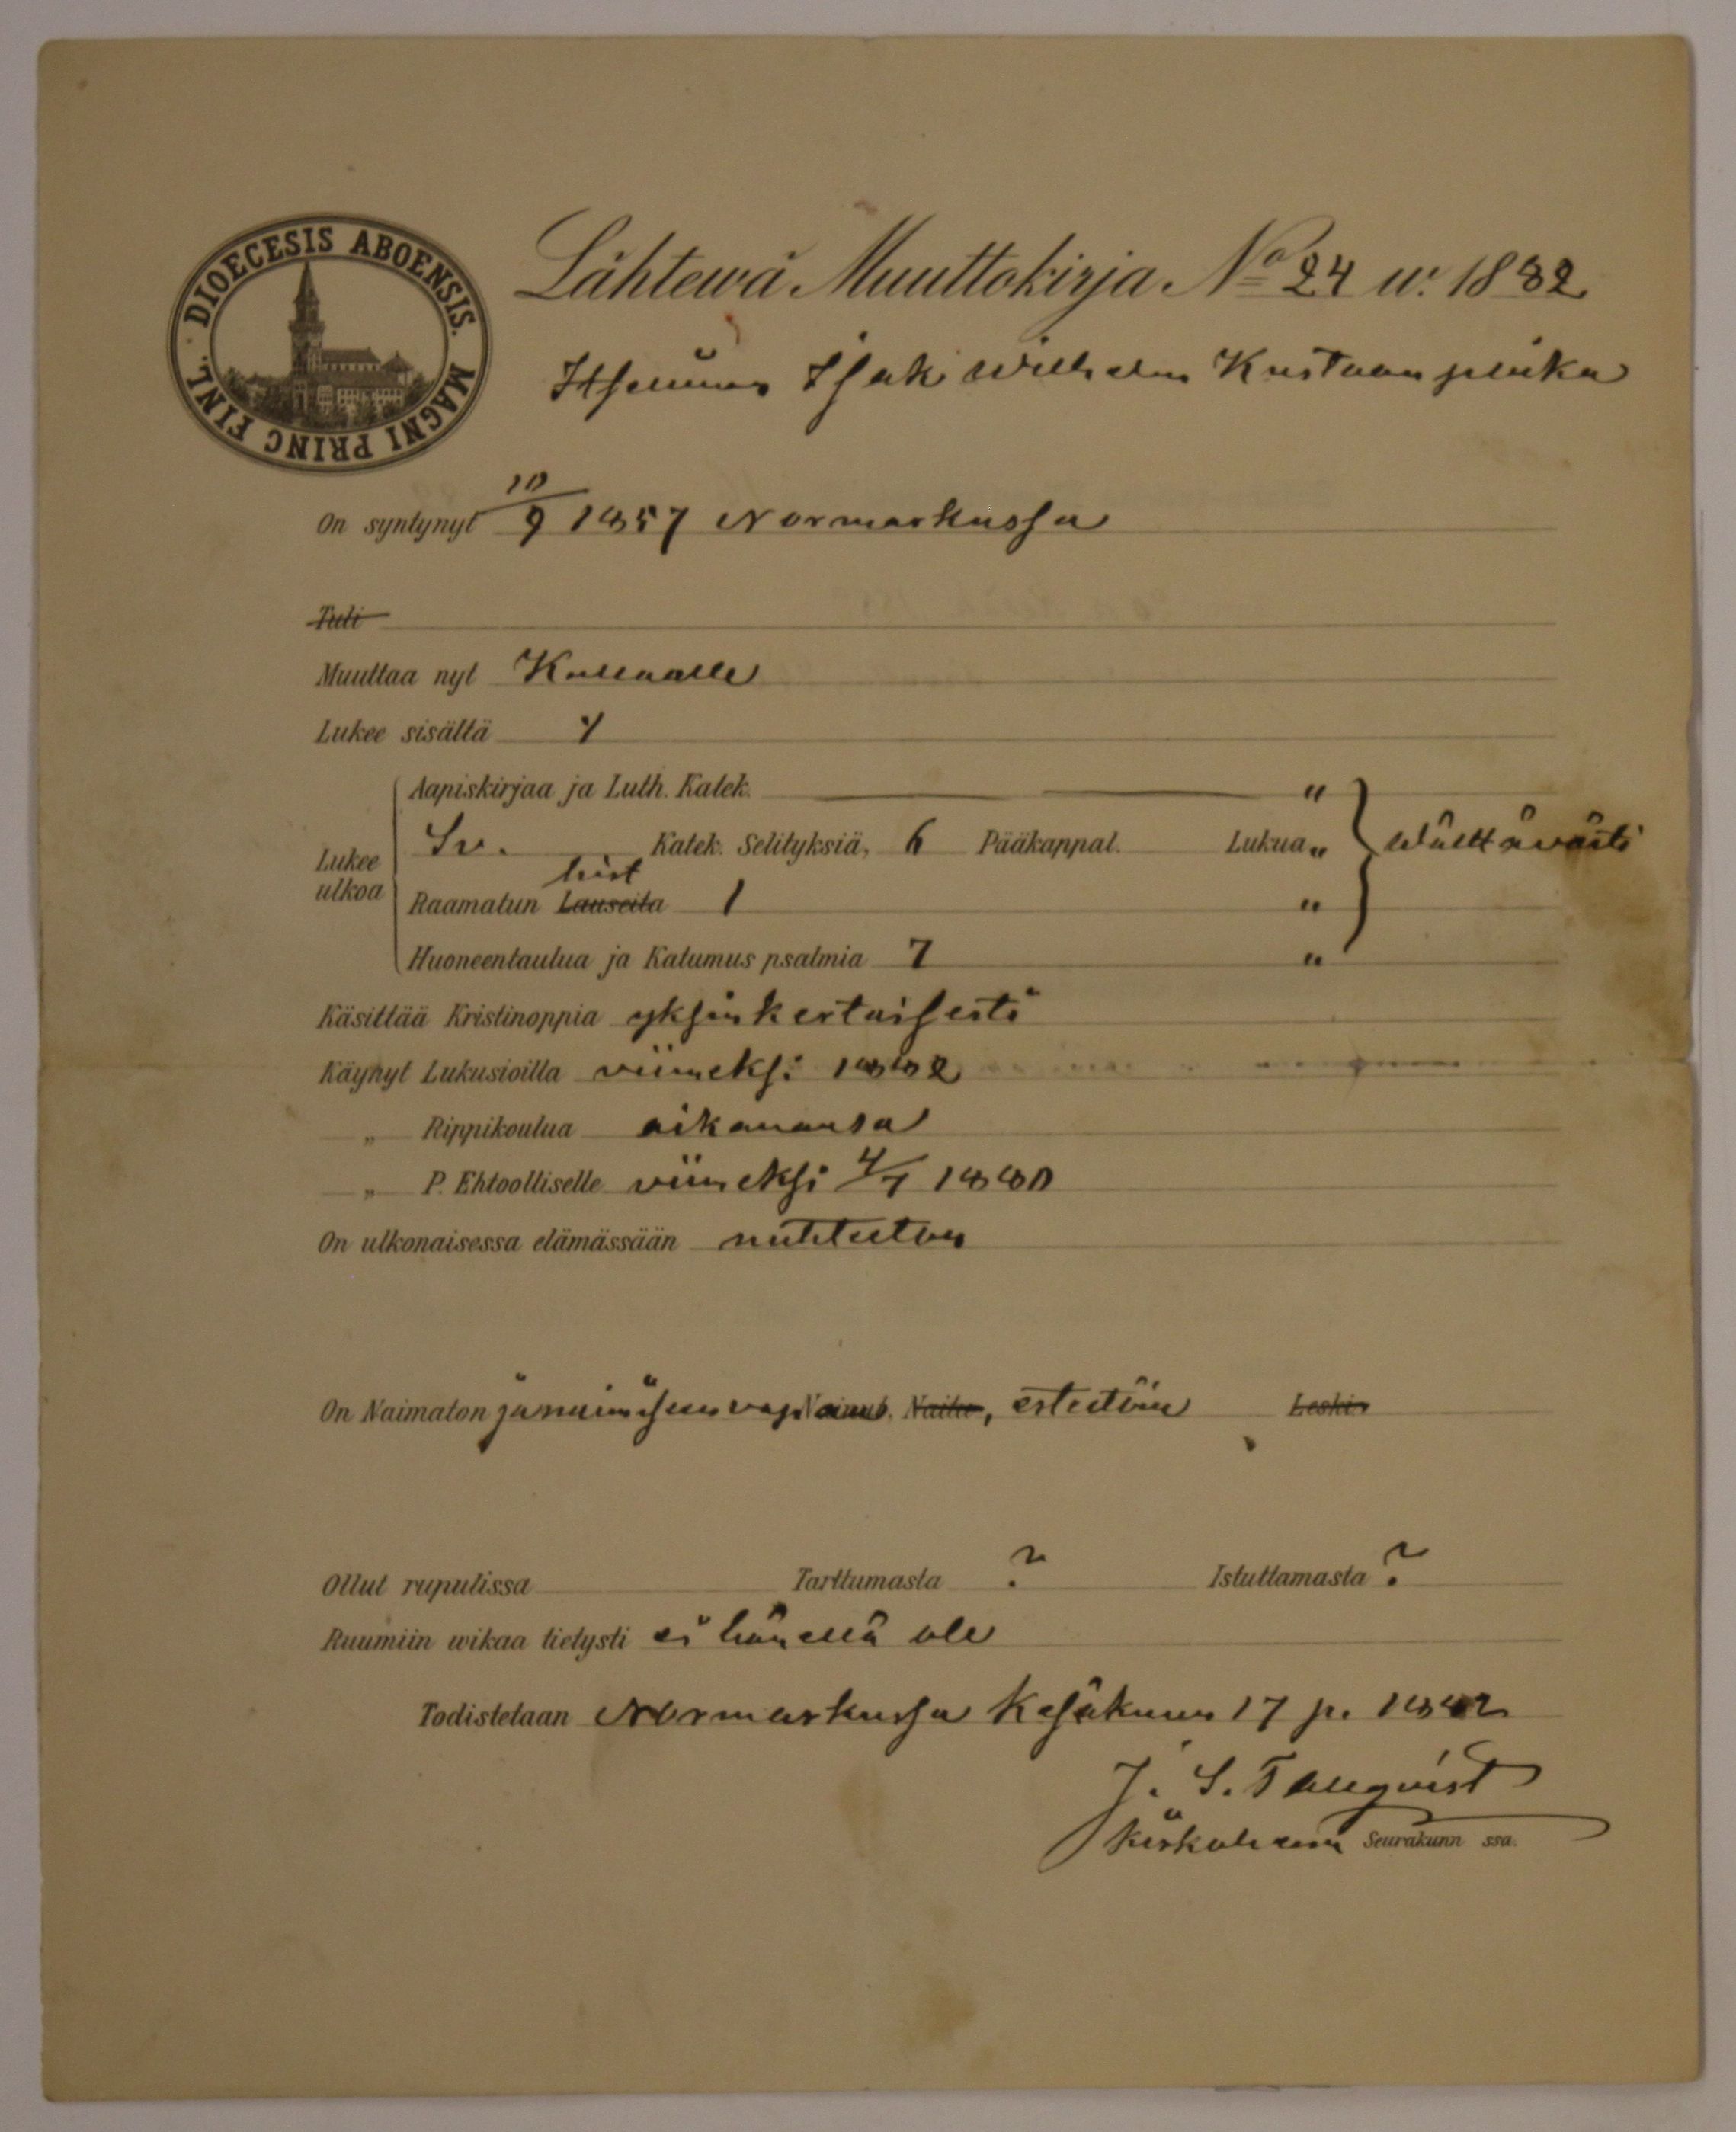 DIOECESIS ABOENSIS. MAGNI PRINC FINL.
Lähtewä Muuttokirja No 24 w. 1882
Itsellinen Isak Wilhelm Kustaan poika
On syntynyt 10/9 1857 Normarkussa
Tuli
Muuttaa nyt Kullaalle
Lukee sisältä
Aapiskirjaa ja Luth. Katek. "
Lukee ulkoa Sv. Katek. Selityksiä, 6 Pääkappal. Lukua „ wälttäwästi
hist
Raamatun Lauseita 1 "
Huoneentaulua ja Katumus psalmia 7 "
Käsittää Kristinoppia yksinkertaisesti
Käynyt Lukusioilla viimeksi 1882
„ Rippikoulua aikanansa
„ P. Ehtoolliselle viimeksi 4/7 1880
On ulkonaisessa elämässään nuhteeton
On Naimaton ja naimiseen Naitu, esteetöin Leski
Ollut rupulissa Tarttumasta ? Istuttamasta ?
Ruumiin wikaa tietysti ei hänellä ole
Todistetaan Normarkussa Kesäkuun 17 p. 1882
J. S. Tallqvist
Kirkoherra Seurakunn ssa.